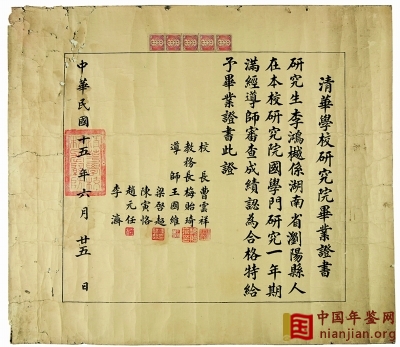 清華學校研究院畢業證書
研究生李鴻樾係湖南省瀏陽縣人
在本校研究院國學門研究一年期
滿經導師審查成績認為合格特給
予畢業證書此證
校長曹雲祥
教務長梅貽琦
導師王國維
梁啓超
陳寅恪
趙元任
李濟
中華民國十五年六月廿五日
中国年鉴网
nianjian.org